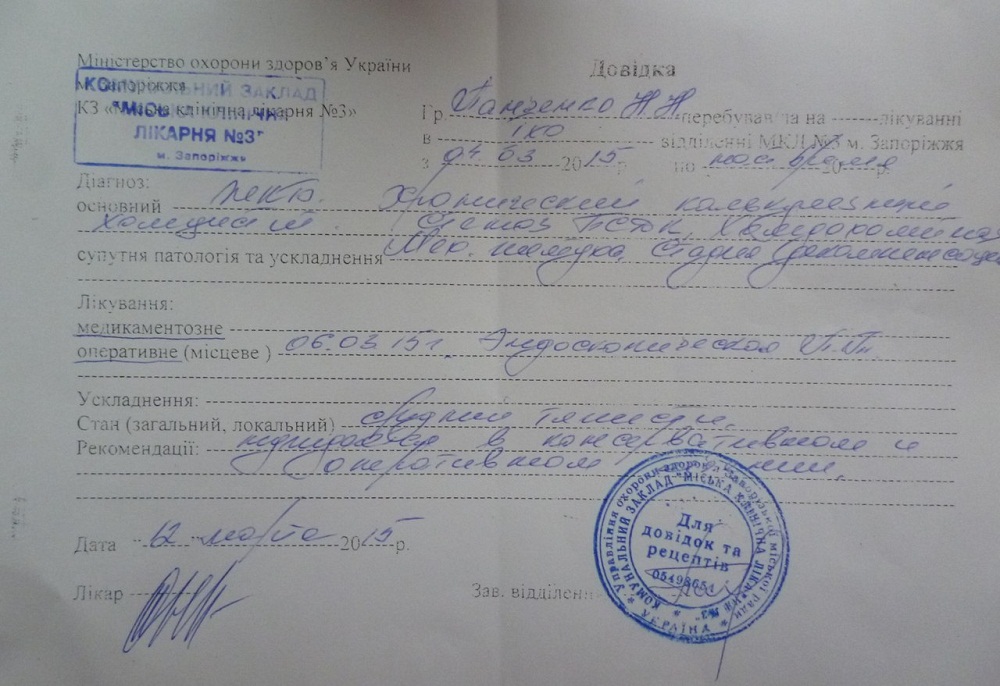 Міністерство охорони здоров'я України
Довідка
м. Запоріжжя
КЗ «Міська клінічна лікарня №3»
КОМУНАЛЬНИЙ ЗАКЛАД
"МІСЬКА КЛІНІЧНА
ЛІКАРНЯ №3"
м. Запоріжжя
Гр. Панченко Н.Н. перебував/ла на лікуванні
в відділенні МКЛ №3 м. Запоріжжя
з 04 03 2015 р. по наст. время 20 р.
Діагноз:
основний ЖКБ. Хронический калькулезный
холецистит. Стеноз
супутня патологія та ускладнення Мех. желтуха,
Лікування:
медикаментозне
оперативне (місцеве ) 06.03.15г. Эндоскопическая
Ускладнення:
Стан (загальний, локальний) средней тяжести.
Рекомендації: нуждается в консервативном и
оперативном лечении.
Дата 12 марта 2015р.
Лікар
Зав. відділення
Управління охорони здоров'я Запорізької міської ради
КОМУНАЛЬНИЙ ЗАКЛАД "МІСЬКА КЛІНІЧНА ЛІКАРНЯ №3"
Для
довідок та
рецептів
05498654
УКРАЇНА